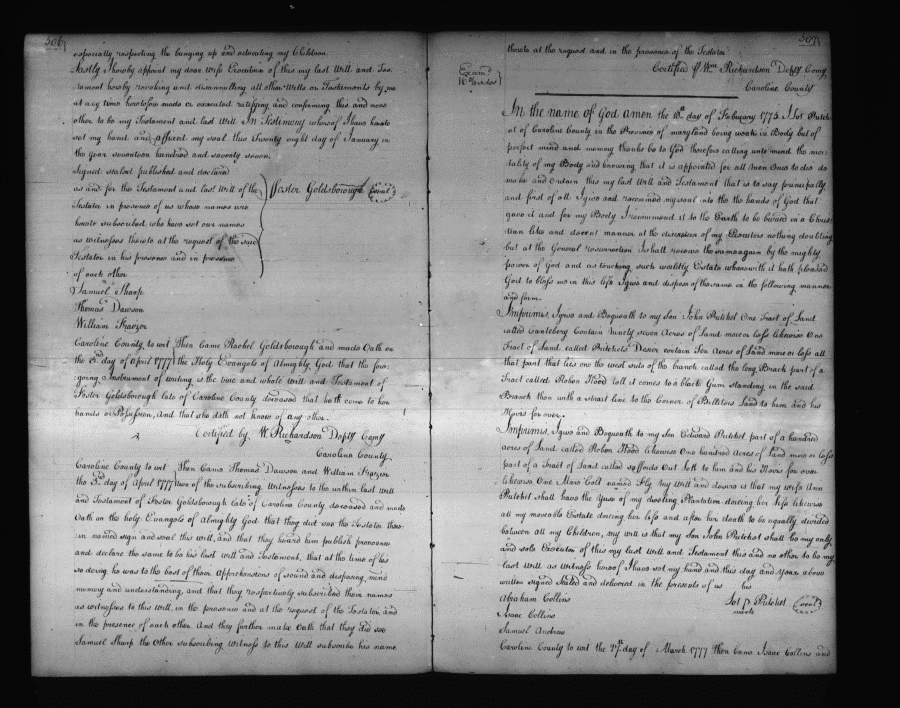 506
especially respecting the bringing up and educating my Children.
Lastly I hereby appoint my dear wife Executrix of this my last Will and Tes-
tament hereby revoking and disannulling all other Wills or Testaments by me
at any time heretofore made or executed ratifying and confirming this and none
other to be my Testament and last Will. In Testimony whereof I have hereto
set my hand and affixed my seal this Twenty eight day of January in
the year seventeen hundred and seventy seven.
Signed sealed published and declared
as and for the Testament and last Will of the
Testator in presence of us whose names are
hereto subscribed, who have set our names
as witnesses thereto at the request of the said
Testator in his presence and in presence
of each other
Foster Goldsborough seal
Samuel Sharp
Thomas Dawson
William Frazier
Caroline County, to wit Then Came Rachel Goldsborough and made Oath on
the 3d. day of April 1777 the Holy Evangels of Almighty God that the fore-
going Instrument of writing is the true and whole will and Testament of
Foster Goldsborough late of Caroline County deceased that hath come to her
hands or Possession, And that she doth not know of any other.
Certified by, W. Richardson Depty Comy
Caroline County
Caroline County to wit Then Came Thomas Dawson and William Frazier
the 3d. day of April 1777 two of the subscribing Witnesses to the within last Will
and Testament of Foster Goldsborough late of Caroline County deceased and made
Oath on the holy Evangels of Almighty God that they did see the Testator there-
in named sign and seal this will, and that they heard him publish pronounce
and declare the same to be his last will and Testament, that at the time of his
so doing he was to the best of their Apprehensions of sound and disposing mind
memory and understanding, and that they respectively subscribed their names
as witnesses to this will in the presence and at the request of the Testator, and
in the presence of each other. And they further make Oath that they did see
Samuel Sharp the Other subscribing Witness to this Will subscribe his name
507
thereto at the request and in the presence of the Testator
Certified p Wm Richardson Depty Comy
Caroline County
Examd.
In the name of God amen the 18th day of February 1775. I Lot Pritch-
et of Caroline County in the Province of maryland being weak in Body but of
perfect mind and memory thanks be to God therefore calling unto mind the mor-
tality of my Body and knowing that it is appointed for all men Once to die do
make and Ordain this my last Will and Testament that is to say principally
and first of all I give and recommend my soul into the the hands of God that
gave it and for my Body I recommend it to the Earth to be buried in a Chris-
tian like and decent manner at the discretion of my Executors nothing doubting
but at the General resurrection I shall receive the same again by the mighty
power of God and as touching such worldly Estate wherewith it hath pleased
God to bless me in this life I give and dispose of the same in the following manner
and form.
Imprimis, I give and Bequeath to my Son John Pritchet One Tract of Land
called Canterbery Contain Ninety seven Acres of Land more or less likewise One
Tract of Land called Pritchets Desier contain Ten Acres of Land more or less all
that part that lies one the west side of the branch called the long Brach part of a
Tract called Roben Hood tell it comes to a black Gum standing in the said
Branch then with a strait line to the Corner of Billitors Land to him and his
Heirs for ever.
Imprimis, I give and Bequeath to my Son Edward Pritchet part of a hundred
acres of Land called Roben Hood likewise One hundred Acres of Land more or less
part of a Tract of Land called Seffords Out Let to him and his Heirs for ever
likewise One Mair Colt named Fly My will and desire is that my wife Ann
Pritchet shall have the Yuse of my dweling Plantation dureing her life likewise
all my moveable Estate dureing her life and after her death to be equally divided
between all my Children, my will is that my Son John Pritchet shall be my only
and sole Executor of this my last Will and Testament this and no other to be my
last Will as witness hereof I have set my hand and this day and Year above
written signed Sealed and delivered in the presents of us his
Abraham Collins
Lot P Pritchet seal
mark
Isaac Collins
Samuel Andrew
Caroline County to wit the day of March 1777 Then Came Isaac Collins and